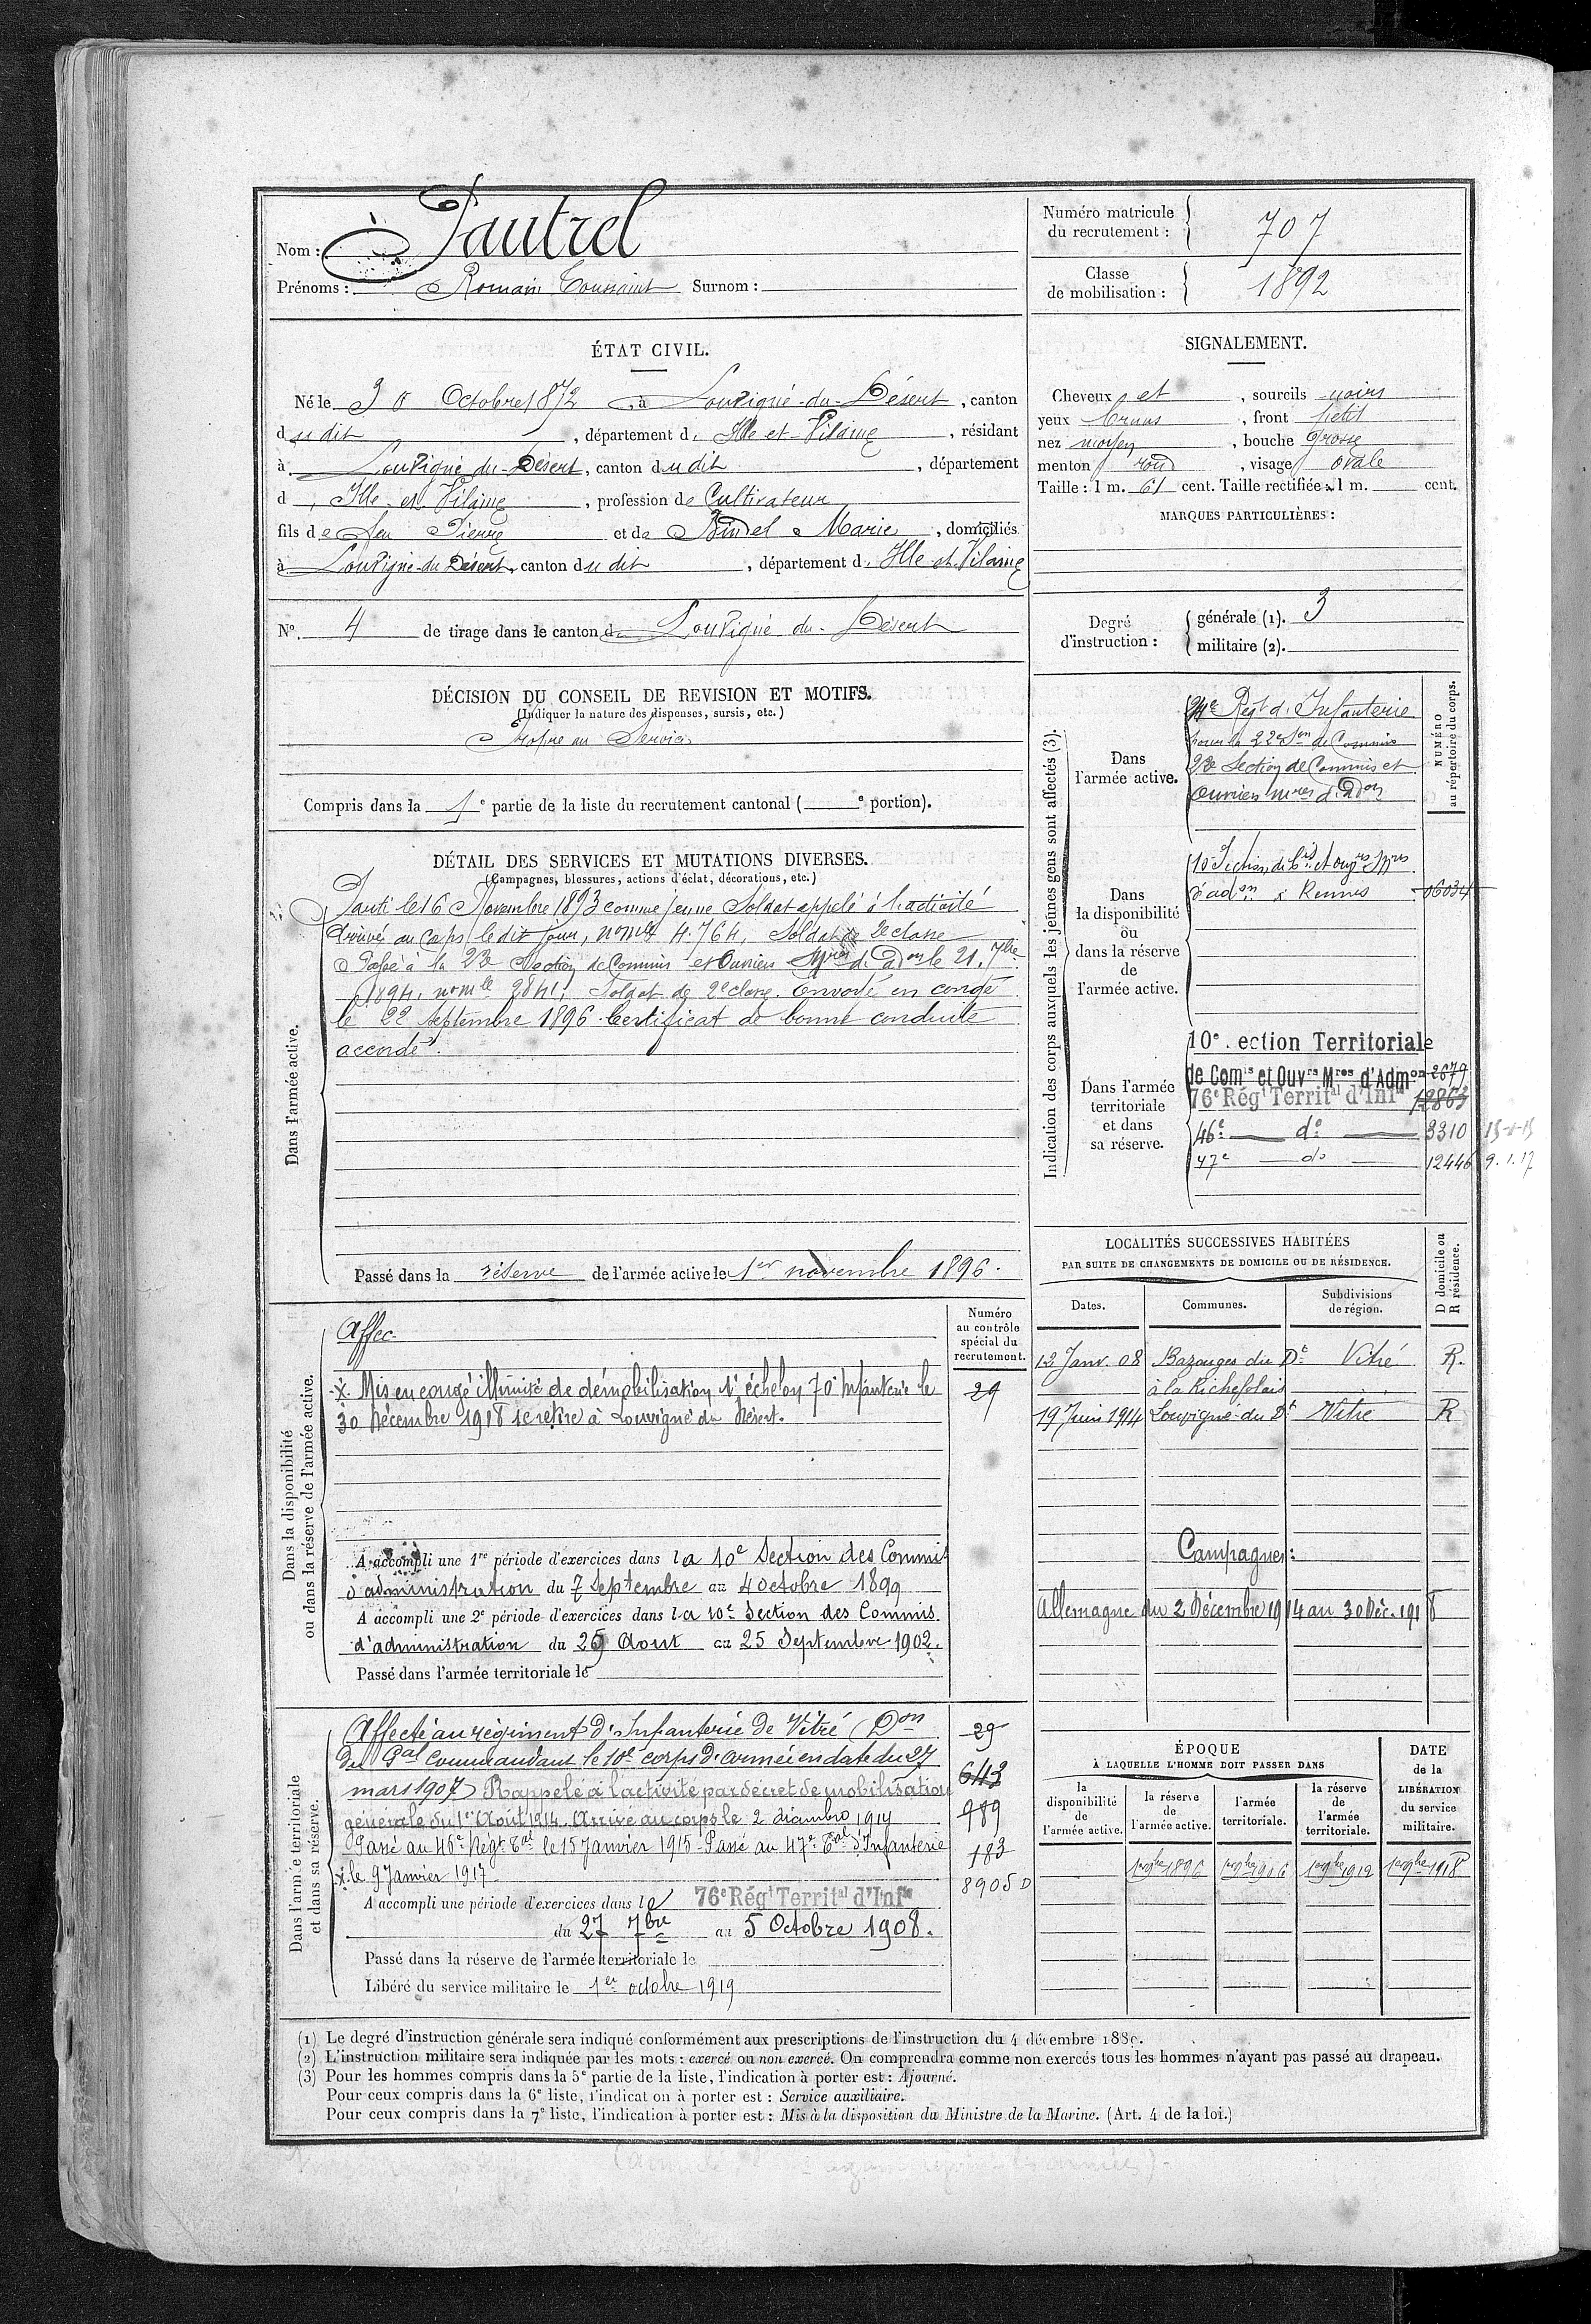 Nom : Pautrel
Prénoms : Romain Toussaint Surnom :
Numéro matricule du recrutement : 707
Classe de mobilisation : 1892
ÉTAT CIVIL.
Né le 30 Octobre 1872, à Louvigné-du-Désert, canton
dudit, département d'Ille-et-Vilaine, résidant
à Louvigné-du-Désert, canton dudit, département
d'Ille-et-Vilaine, profession de Cultivateur
fils de feu Pierre et de Marie, domiciliés
à Louvigné-du-Désert, canton dudit, département d'Ille-et-Vilaine
N° 4 de tirage dans le canton de Louvigné-du-Désert
SIGNALEMENT.
Cheveux et, sourcils noirs
yeux bruns, front petit
nez moyen, bouche grosse
menton rond, visage ovale
Taille : 1 m. 61 cent. Taille rectifiée : 1 m. cent.
MARQUES PARTICULIÈRES :
Degré d'instruction : générale (1). 3
militaire (2).
DÉCISION DU CONSEIL DE REVISION ET MOTIFS.
(Indiquer la nature des dispenses, sursis, etc.)
Propre au Service
Compris dans la 1e partie de la liste du recrutement cantonal ( e portion).
DÉTAIL DES SERVICES ET MUTATIONS DIVERSES.
(Campagnes, blessures, actions d'éclat, décorations, etc.)
Dans l'armée active.
Parti le 16 Novembre 1893 comme jeune Soldat appelé à l'activité
Arrivé au Corps le dit jour, nomle 4.764, Soldat de 2e classe
Passé à la 22e Section de Commis et Ouvriers Mres d'Adon le 21 7bre
1894, nomle 2841, Soldat de 2e classe. Envoyé en congé
le 22 septembre 1896. Certificat de bonne conduite
accordé.
Passé dans la réserve de l'armée active le 1er novembre 1896.
Indication des corps auxquels les jeunes gens sont affectés (3).
NUMÉRO au répertoire du corps.
Dans l'armée active.
Regt d'Infanterie
pour la 22e Son de Commis
22e Section de Commis et
Ouvriers Mres d'Adon
Dans la disponibilité ou dans la réserve de l'armée active.
10 Section de Cis et Ouvrs Mres
d'adon à Rennes 06034
Dans l'armée territoriale et dans sa réserve.
10e Section Territoriale
de Comis et Ouvrs Mres d'Admon 2679
76e Régt Territal d'Infie 12863
46e do 3310
47e do 12446 9.1.17
LOCALITÉS SUCCESSIVES HABITÉES
PAR SUITE DE CHANGEMENTS DE DOMICILE OU DE RÉSIDENCE.
Dates. Communes. Subdivisions de région. D domicile ou R résidence.
12 Janv. 08 Bazouges du Dt Vitré R.
à la
19 Juin 1914 Louvigné-du-Dt Vitré R
Campagnes :
Allemagne du 2 Décembre 1914 au 30 Déc. 1918
Dans la disponibilité ou dans la réserve de l'armée active.
Numéro au contrôle spécial du recrutement.
Affec
x. Mis en congé illimité de démobilisation 1r échelon 70e Infanterie le 29
30 Décembre 1918 se retire à Louvigné du Désert.
A accompli une 1re période d'exercices dans la 10e Section des Commis
d'administration du 7 Septembre au 4 octobre 1899
A accompli une 2e période d'exercices dans la 10e Section des Commis
d'administration du 29 Aout au 25 Septembre 1902.
Passé dans l'armée territoriale le
Dans l'armée territoriale et dans sa réserve.
Affecté au régiment d'Infanterie de Vitré (Don 29
du Gal Commandant le 10e corps d'armée en date du 27
mars 1907) Rappelé à l'activité par décret de mobilisation 643
générale du 1er Août 1914. Arrivé au corps le 2 décembre 1914 989
Passé au 46e Régt Tal le 15 Janvier 1915 - Passé au 47e Tal d'Infanterie 183
x. le 9 Janvier 1917 8905 D
A accompli une période d'exercices dans le 76e Régt Territal d'Infie
du 27 7bre au 5 Octobre 1908.
Passé dans la réserve de l'armée territoriale le
Libéré du service militaire le 1er octobre 1919
ÉPOQUE
À LAQUELLE L'HOMME DOIT PASSER DANS
la disponibilité de l'armée active. la réserve de l'armée active. l'armée territoriale. la réserve de l'armée territoriale. DATE de la LIBÉRATION du service militaire.
1er 9bre 1896 1er 9bre 1906 1er 9bre 1912 1er 9bre 1918
(1) Le degré d'instruction générale sera indiqué conformément aux prescriptions de l'instruction du 4 décembre 1889.
(2) L'instruction militaire sera indiquée par les mots : exercé ou non exercé. On comprendra comme non exercés tous les hommes n'ayant pas passé au drapeau.
(3) Pour les hommes compris dans la 5e partie de la liste, l'indication à porter est : Ajourné.
Pour ceux compris dans la 6e liste, l'indication à porter est : Service auxiliaire.
Pour ceux compris dans la 7e liste, l'indication à porter est : Mis à la disposition du Ministre de la Marine. (Art. 4 de la loi.)